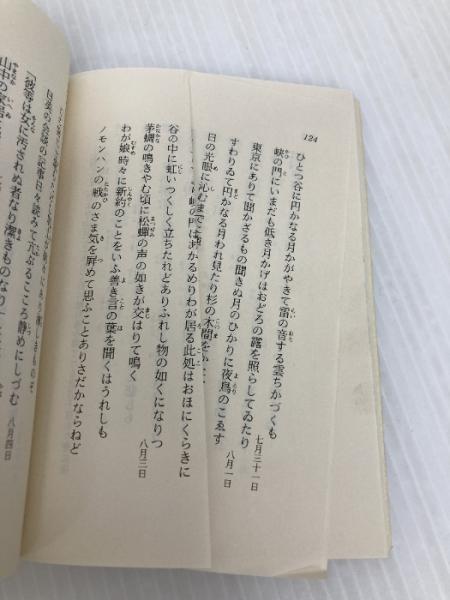 124
ひとつ谷に円かなる月かがやきて雷の音する雲ちかづくも
峡の門にいまだも低き月かげはおどろの露を照らしてゐたり
七月三十一日
東京にありて聞かざるもの聞きぬ月のひかりに夜鳥のこゑす
すわりゐて円かなる月われ見たり杉の木間を
八月一日
日の光眼に沁むまで
峡の門はあかるめりわが居る此処はおほにくらきに
谷の中に虹いつくしく立ちたれどありふれし物の如くになりつ
八月三日
茅蜩の鳴きやむ頃に松蟬の声の如きが交はりて鳴く
わが娘時々に新約のことをいふ善き言の葉を聞くはうれしも
ノモンハンの戦のさま気を屛めて思ふことありさだかならねど
日英の会談の記事日々読みて亢ぶるこころ静めにしづむ
八月四日
「彼等は女に汚されぬ者なり潔きものなり」
山中の